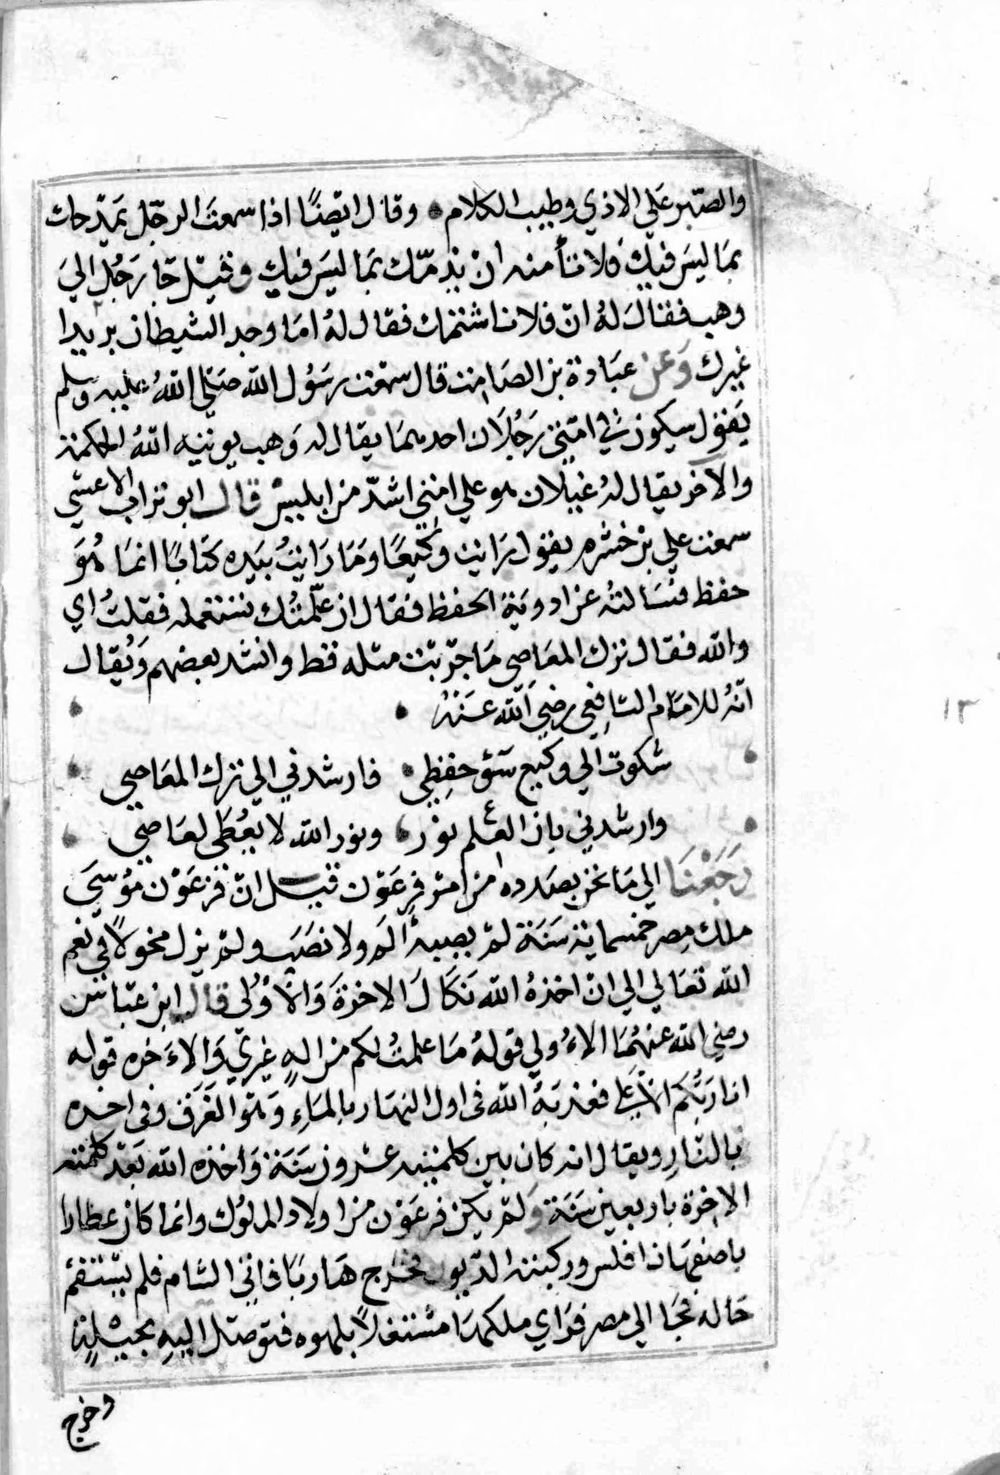 والصّبر علي الاذي وطيب الكلام • وقال ايضًا اذا سمعت الرجل يمدحك
بما ليس فيك فلا تأمنه ان يذمّك بما ليس فيك وقيل جا رجل الي
وهب فقال له انّ فلانا شتمك فقال له اما وجد الشيطان بريدا
غيرك وعن عبادة بن الصامت قال سمعت رسول الله صلي الله عليه وسلم
يقول سيكون في امتي رجلان احدهما يقال له وهب يوتيه الله الحكمة
والاخر يقال له غيلان هو علي امتي اشدّ من ابليس قال ابو تراب الاعشي
سمعت علي بن خشرم يقول رايت وكيعًا وما رايت بيده كتابًا انما هو
حفظ فسالته عن ادوية الحفظ فقال ان علّمتك تستعمله فقلت اي
والله فقال ترك المعاصي ما جرّبت مثله قط وانشد بعضهم ويقال
انّه للامام الشافعي رضي الله عنه •
شكوت الي وكيع سؤ حفظي • فارشدني الي ترك المعاصي
وارشدني بان العلم نور • ونور الله لا يعطي لعاصي
رجعنا الي ما نحن بصدده من امر فرعون قيل انّ فرعون موسي
ملك مصر خمسماية سنة لم يصبه ألم ولا نصب ولم يزل مخولاً في نعم
الله تعالي الي ان اخذه الله نكال الاخرة والاولي قال ابن عباس
رضي الله عنهما الاولي قوله ما علمت لكم من اله غيري والاخره قوله
انا ربكم الاعلي فعذبه الله في اول النهار بالماء وهو الغرق وفي اخره
بالنار ويقال انه كان بين كلمتيه عشرون سنة واخذه الله بعد كلمته
الاخرة باربعين سنة ولم يكن فرعون من اولاد الملوك وانما كان عطارا
باصفهان افلس وركبته الديون فخرج هاربا فاتي الشام فلم يستقم
حاله فجا الي مصر فراي ملكها مشتغلاً بلهوه فتوصل اليه بحيلة
وخرج
١٣